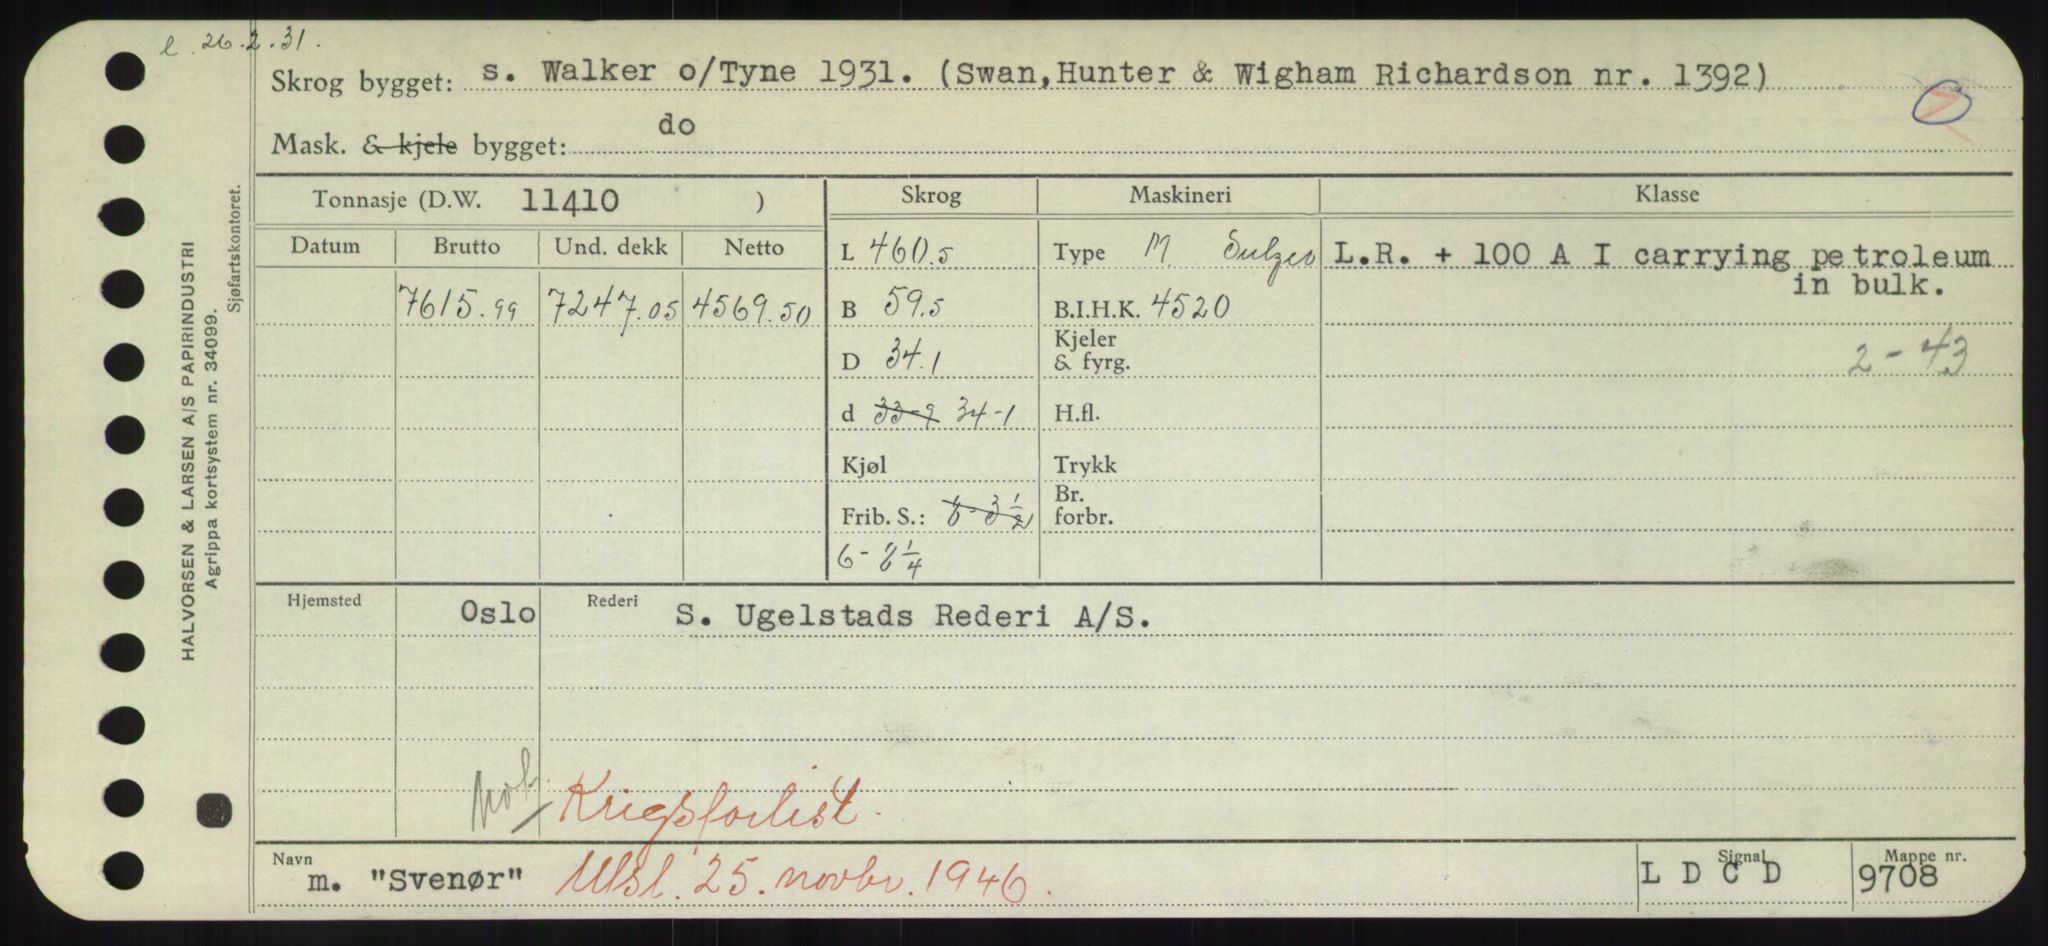 l. 26.2.31.
Skrog bygget: s. Walker o/Tyne 1931. (Swan, Hunter & Wigham Richardson nr. 1392)
Mask. & kjele bygget: do
Tonnasje (D.W. 11410 )
Skrog Maskineri Klasse
Datum Brutto Und. dekk Netto
7615.99 7247.05 4569.50
L 460.5
B 59.5
D 34.1
d 33-9 34-1
Kjøl
Frib. S.: 6-3 1/2
6-2 1/4
Type M Sulzer
B.I.H.K. 4520
Kjeler
& fyrg.
H.fl.
Trykk
Br.
forbr.
L.R. + 100 A I carrying petroleum
in bulk.
2-43
Hjemsted Oslo Rederi S. Ugelstads Rederi A/S.
Krigsforlist.
Navn m. "Svenør" Utsl. 25. novbr. 1946.
Signal L D C D
Mappe nr. 9708
HALVORSEN & LARSEN A/S PAPIRINDUSTRI
Agrippa kortsystem nr. 34099.
Sjøfartskontoret.